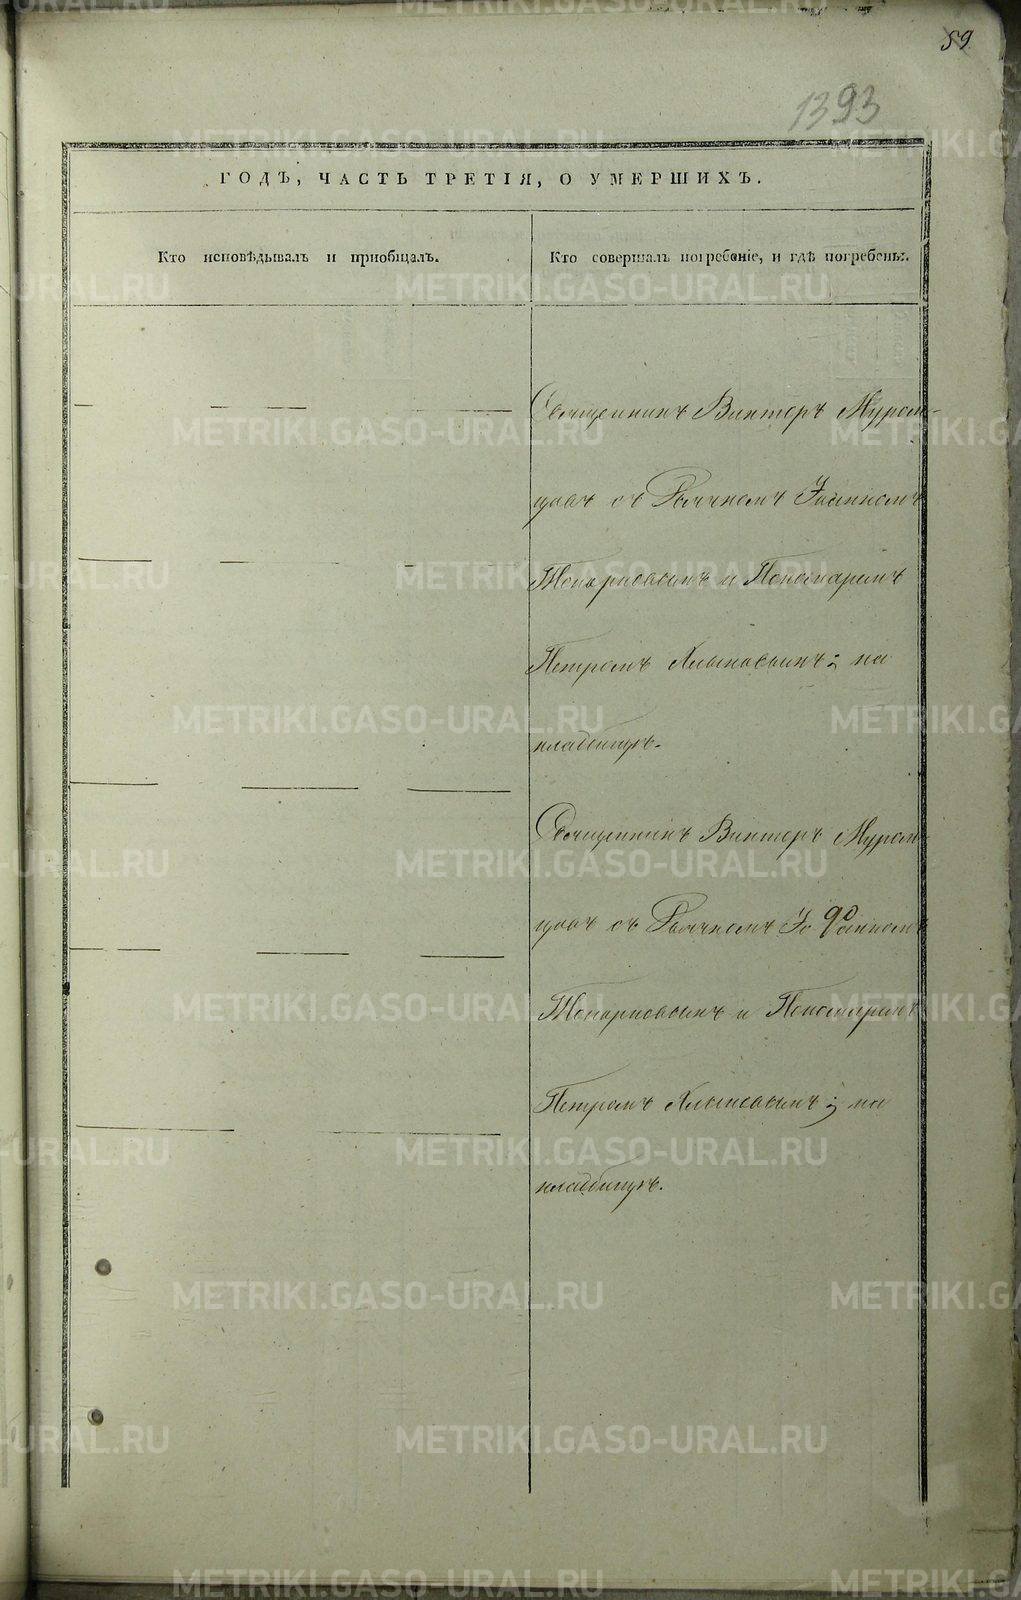 59
1393
ГОДЪ, ЧАСТЬ ТРЕТІЯ, О УМЕРШИХЪ.
Кто исповѣдывалъ и пріобщалъ.
Кто совершалъ погребеніе, и гдѣ погребены.
Священникъ Викторъ Муром-
цовъ съ Дьячкомъ
Топорковымъ и Пономаремъ
Петромъ Хлыновымъ; на
кладбищѣ.
Священникъ Викторъ Муром
цовъ съ Дьячкомъ
Топорковымъ и Пономаремъ
Петромъ Хлыновымъ; на
кладбищѣ.
METRIKI.GASO-URAL.RU